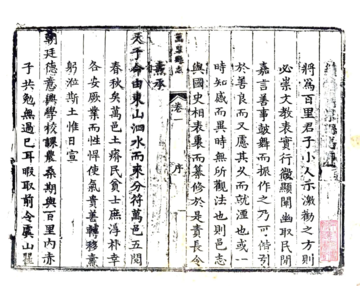 將為百里君子小人示激勸之方則
必崇文教表實行微顯闡幽取民間
嘉言善事鼓舞而振作之乃可偕引
於善良而又慮其久而就湮也或一
時知感而異時無所觀法也則邑志
與國史相表裏而纂修於是責長令
萬泉縣志 卷一 序
熹承
天子命由東山泗水而來分符萬邑五閱
春秋矣萬邑土瘠民貧士廡淳朴幸
各安厥業而性悍使氣貴善轉移熹
躬蒞斯土惟日宣
朝廷德意興學校課農桑期與百里內赤
子共勉無過已耳暇取前令虞山瞿